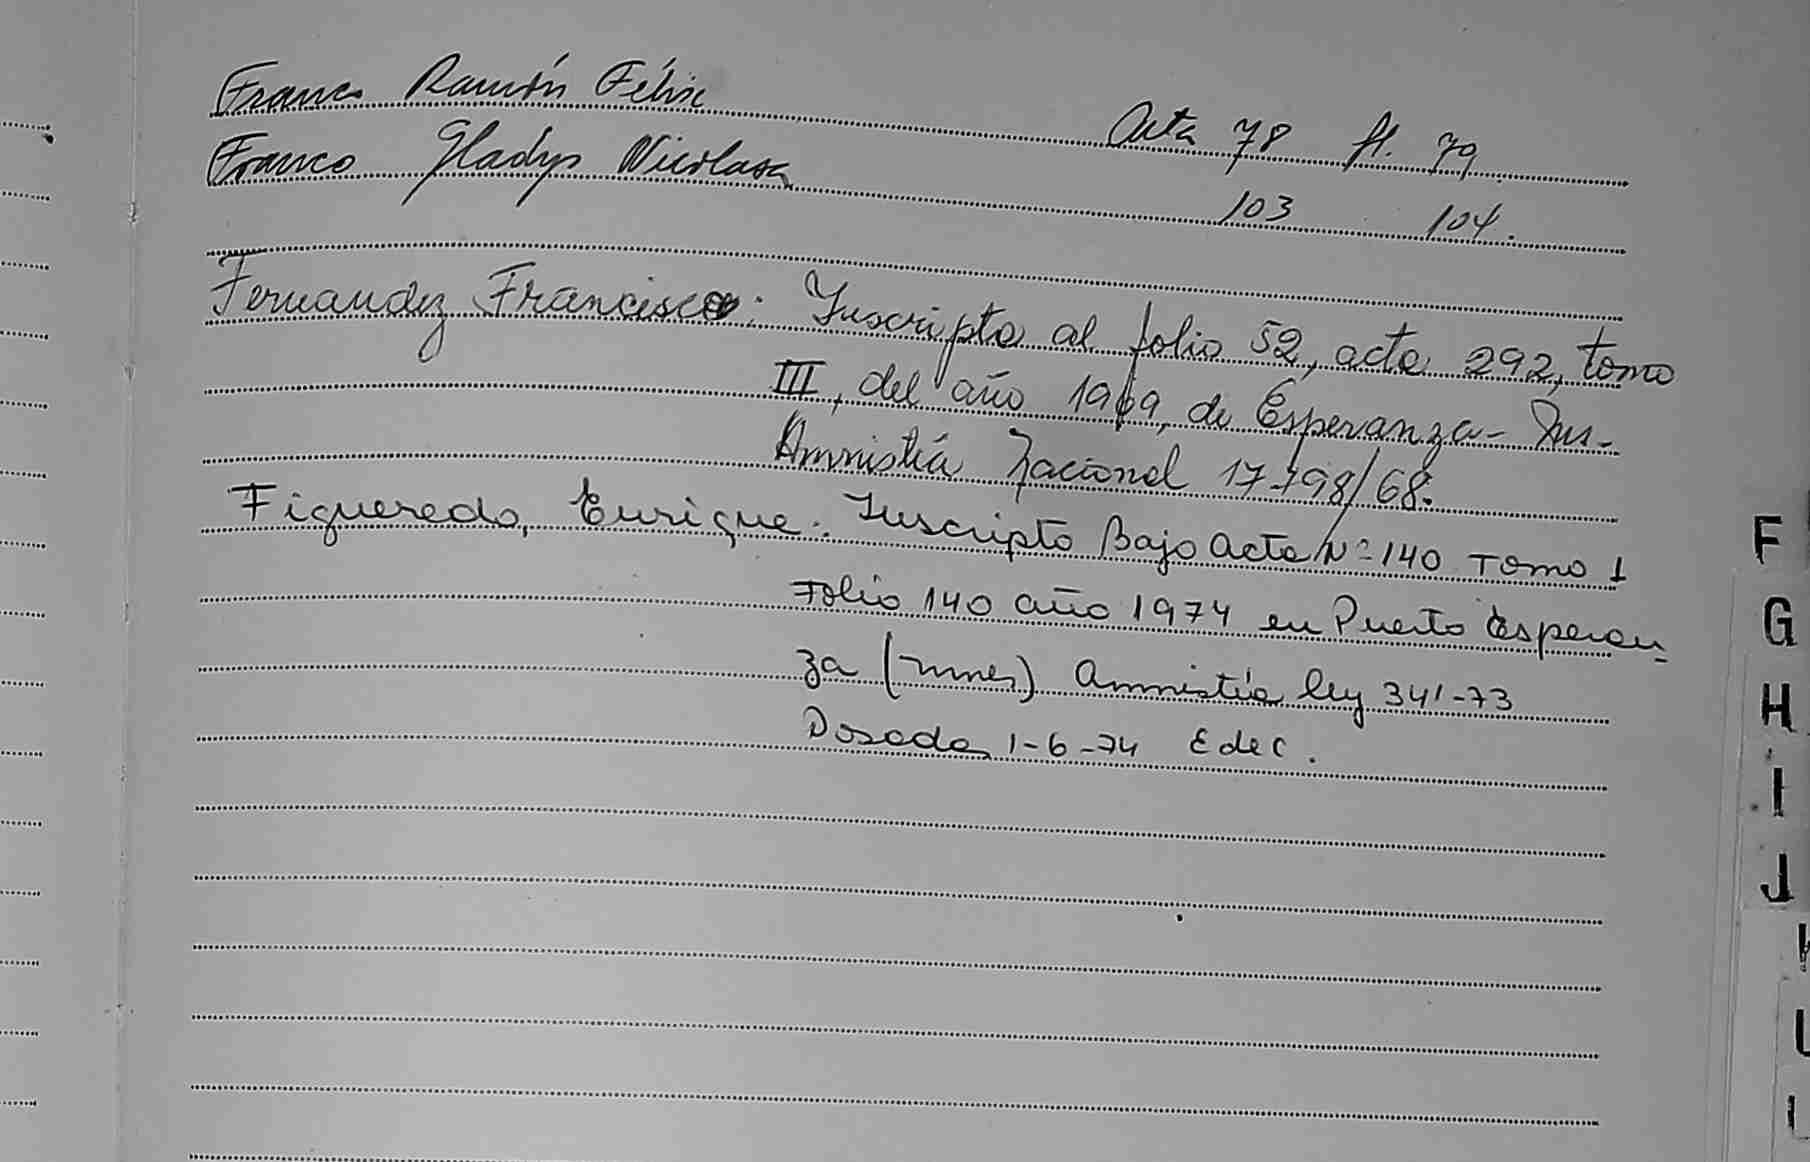 Franco Ramón Félix Acta 78 fl. 79
Franco Gladys Nicolasa 103 104.
Fernandez Francisco: Inscripto al folio 52, acta 292, tomo
III, del año 1969, de Esperanza-
Amnistiá Nacional 17.798/68.
Figueredo, Enrique. Inscripto Bajo acta Nº 140 Tomo 1
Folio 140 año 1974 en Puerto Esperan-
za (mnes) Amnistía ley 341-73
Posadas 1-6-74
F
G
H
I
J